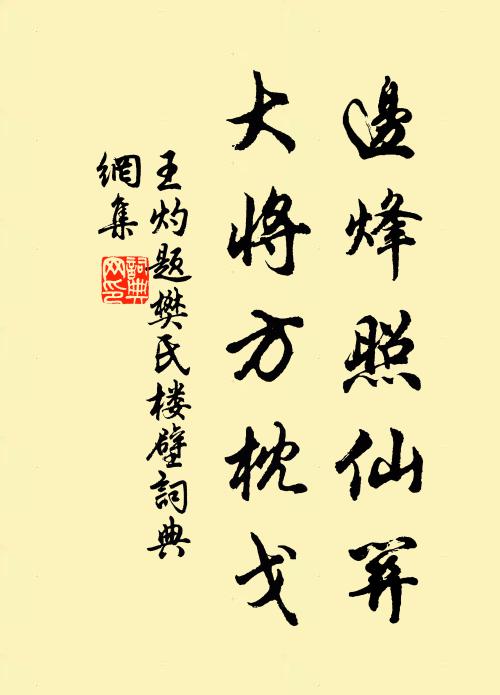 邊烽照仙
大將方枕戈
王灼題樊氏楼壁詞典
網集
詞典
网印